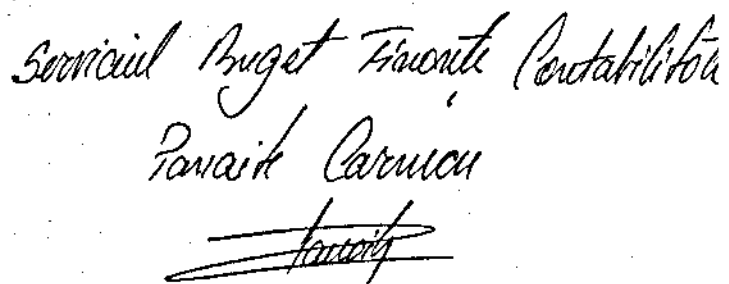 Serviciul Buget Finanțe Contabilitate
Panaite Carmen
Panaite